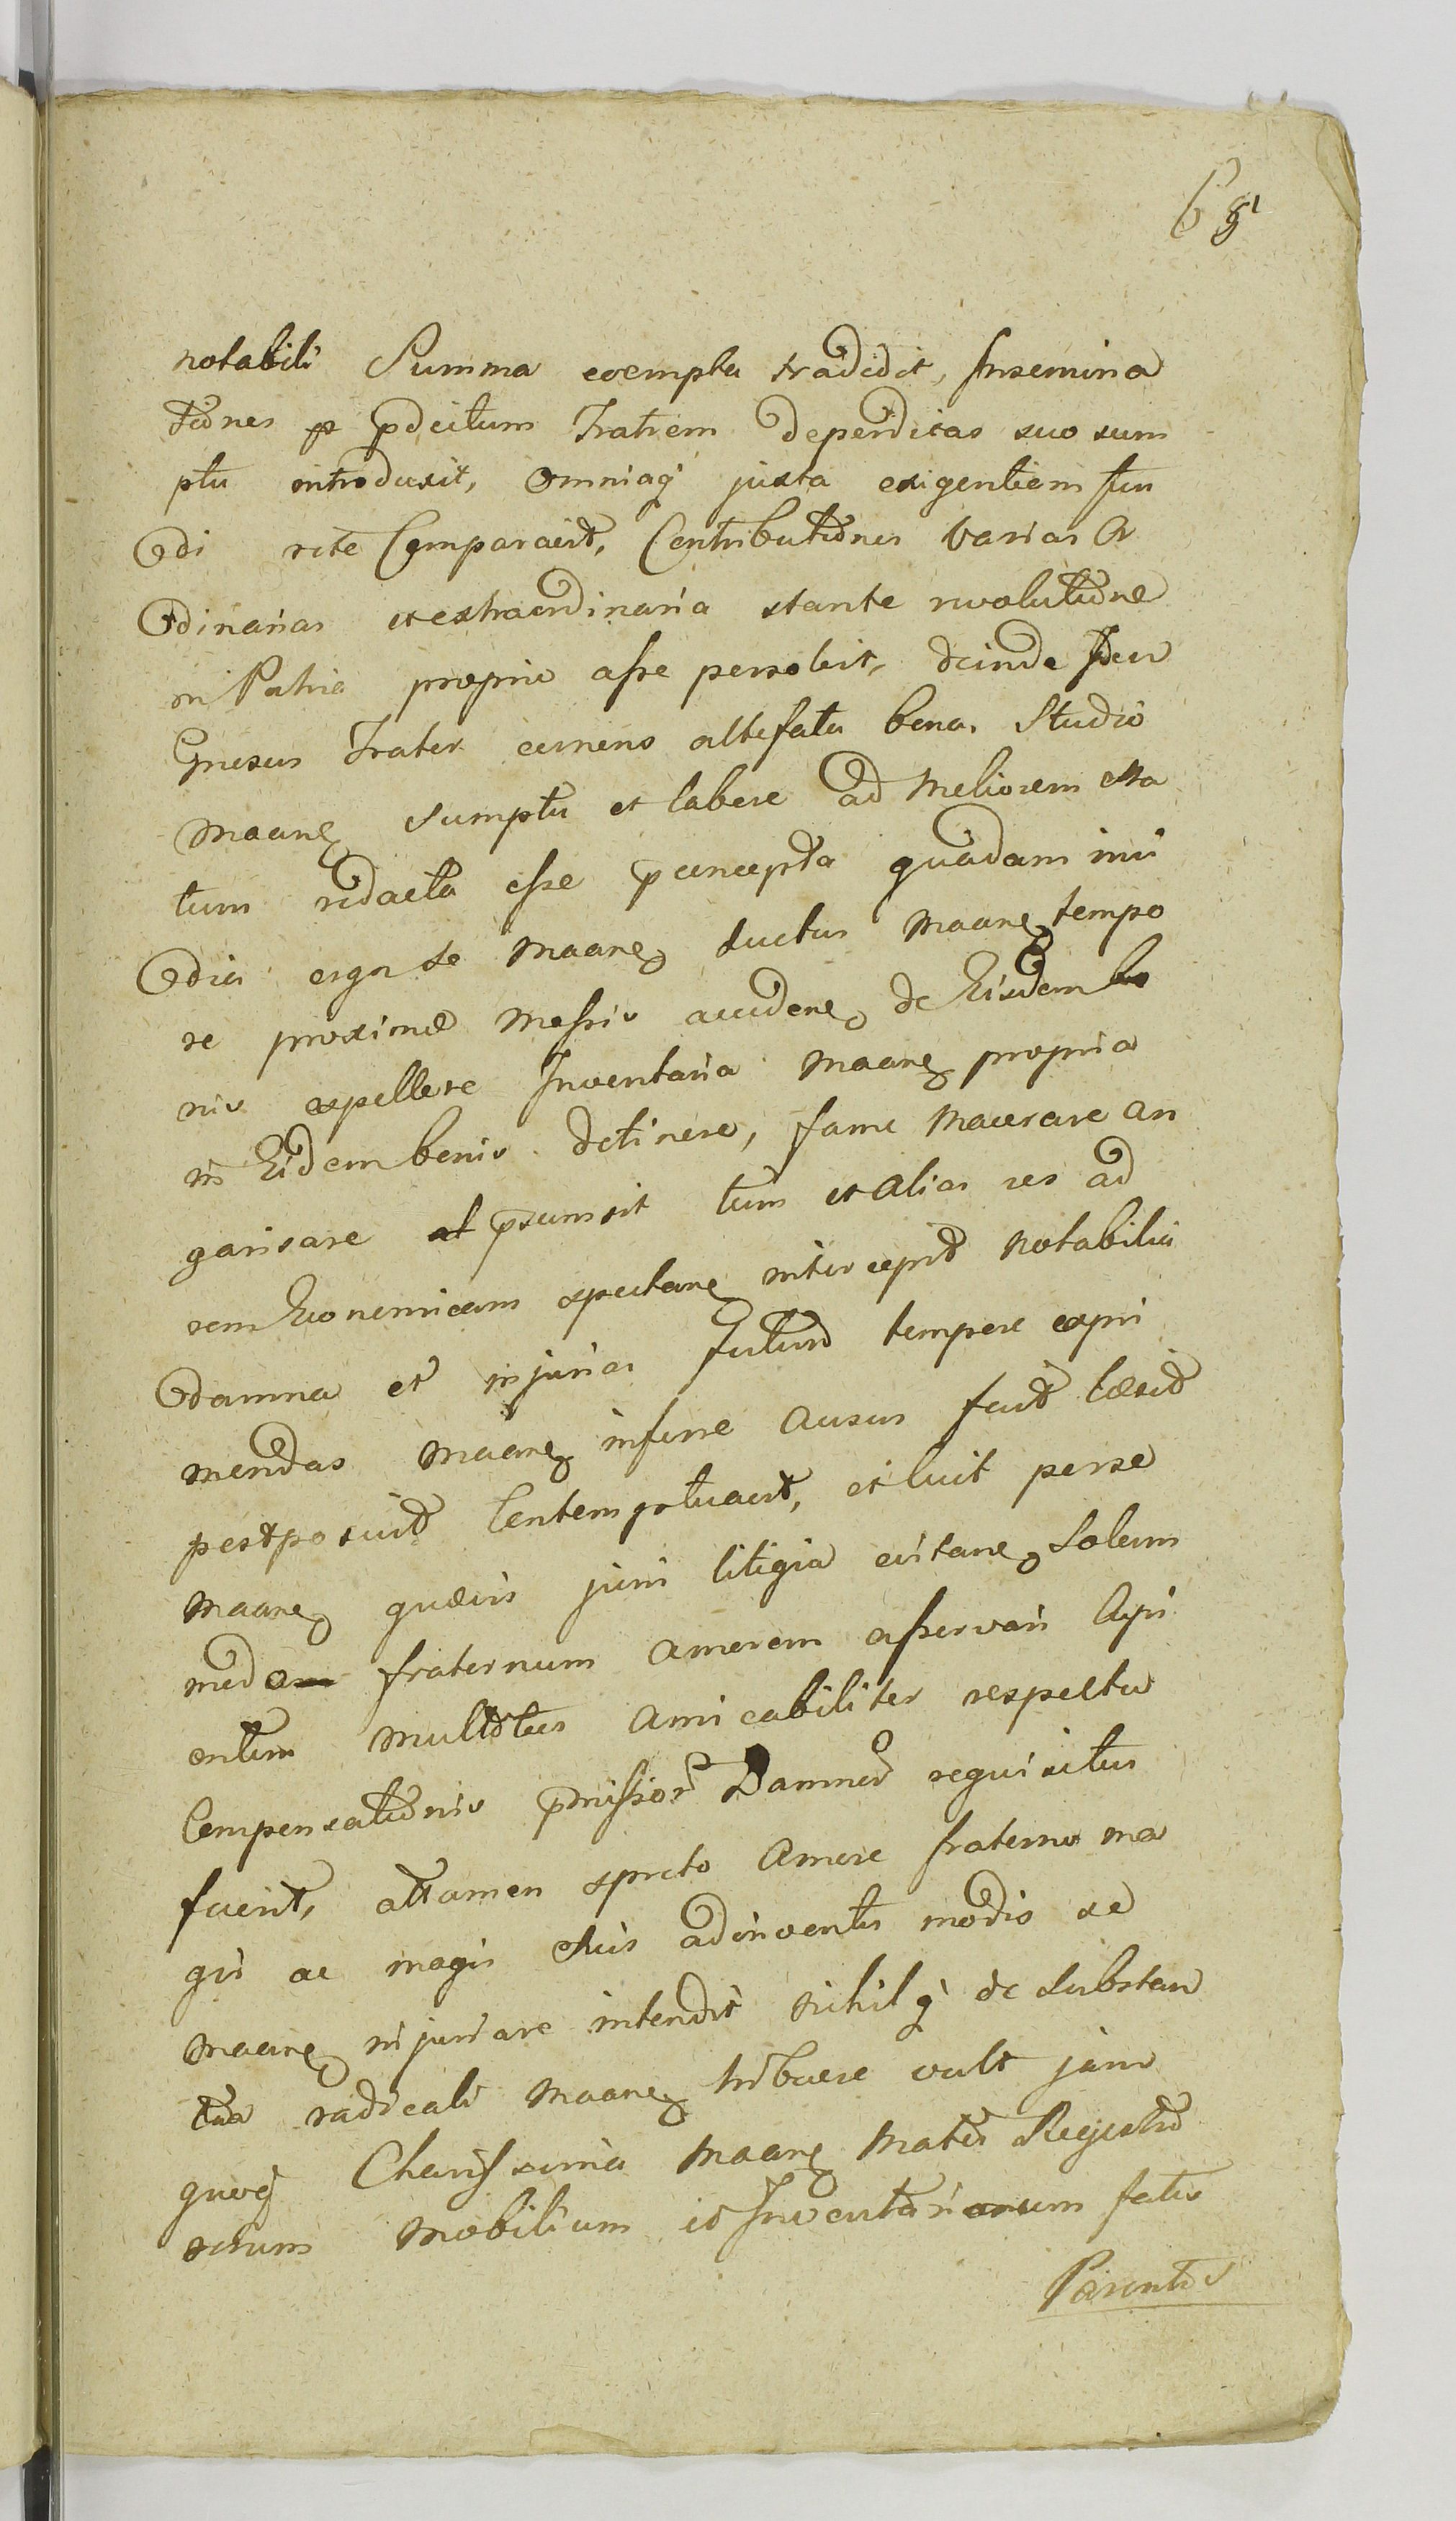 68
notabili Summa exempta tradidit, Insemina
tiones p pdictum Fratrem deperditas suo sum
ptu introduxit, omniaq juxta exigentiam fun
di rite Comparavit, Contributiones varias Or
dinarias et extraordinaria stante revolutione
in Patria proprio asse persolvit, deinde
Gnesus Frater cernens altefata bona Studio
Maane sumptu et labore ad Meliorem sta
tum redacta esse pconcepta quadam invi
dia erga se Maane ductus Maane tempo
re proximo Messis accedene de Eisdem bo
nis expellere Inventaria Maane propria
in Eisdem bonis detinere, fame Macerare an
garisare psumsit tum et alias res ad
rem Economicam spectane intercepit notabilia
damna et injurias futuro tempore expri
mendas Maane inferre ausus fuit læsit
postposuit Contemptuavit, et luit perse
Maane quævis juris litigia evitane, Solum
modo fraternum amorem asservari Cupi
entem multoties amicabiliter respectu
Compensationis pmissor Damnor requisitus
fuerit, attamen spreto Amore fraterno ma
gis ac magis suis adinventis modis se
Maane injuriare intendit nihilq de substan
tia radicali Maane tribuere vult jam
quoq Charissima Maane Matris Registro
rerum Mobilium et Inventariorum fatis
Parentis